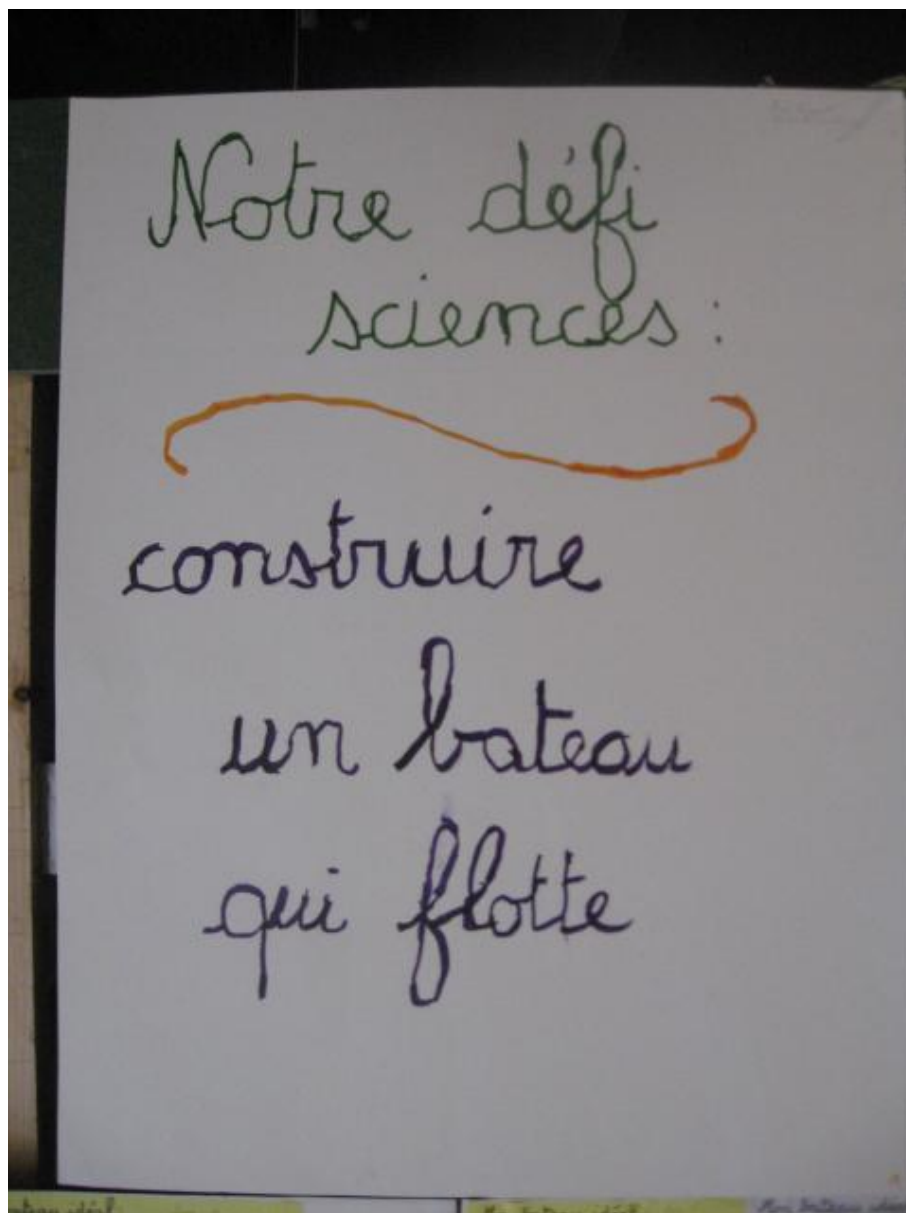 Notre défi
sciences :
construire
un bateau
qui flotte